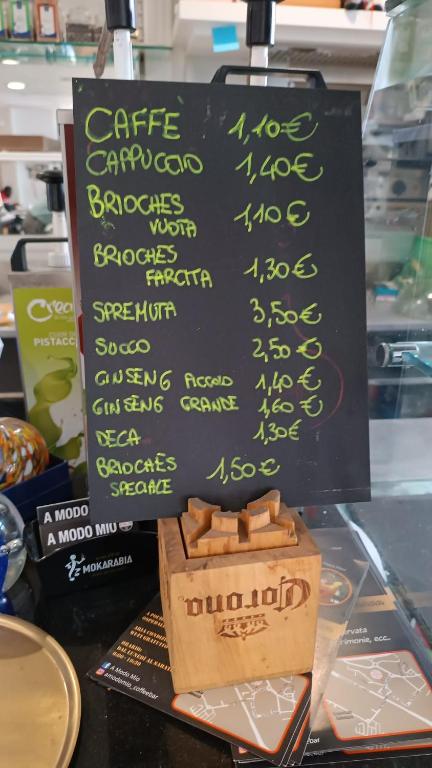 CAFFÈ 1,10€
CAPPUCCIO 1,40€
BRIOCHES
VUOTA 1,10€
BRIOCHES
FARCITA 1,30€
SPREMUTA 3,50€
SUCCO 2,50€
GINSENG PICCOLO 1,40€
GINSENG GRANDE 1,60€
DECA 1,30€
BRIOCHES
SPECIALE 1,50€
Crea
PISTACC
A MODO
A MODO MIO
MOKARABIA
Corona
A Modo Mio
amodomio_coffeebar
ORARIO:
DAL LUNEDÌ AL
ervata
erimonie, ecc..
bar